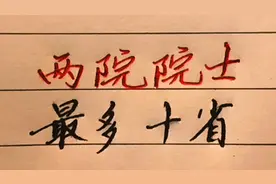 两院院士
最多十省